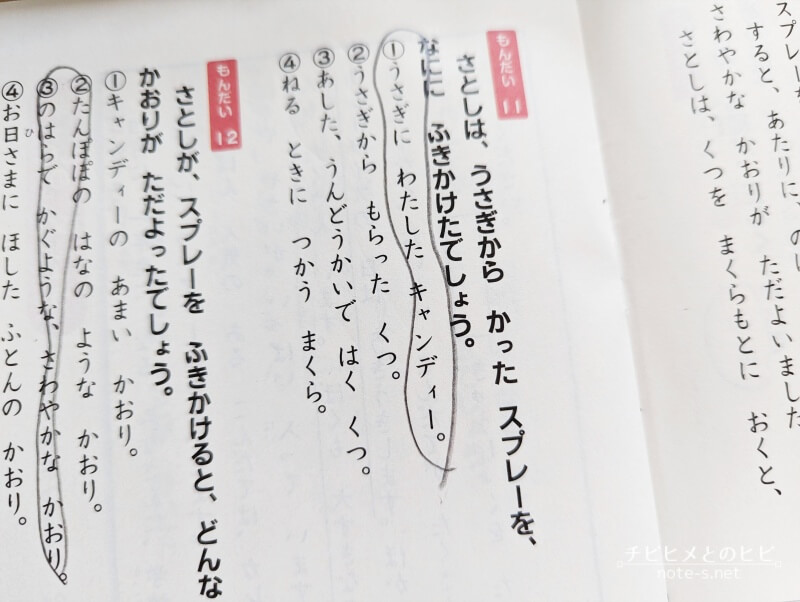 スプレーを
すると、あたりに、のは
さわやかな かおりが ただよいました
さとしは、くつを まくらもとに おくと、
もんだい 11
さとしは、うさぎから かった スプレーを、
なにに ふきかけたでしょう。
①うさぎに わたした キャンディー。
②うさぎから もらった くつ。
③あした、うんどうかいで はく くつ。
④ねる ときに つかう まくら。
もんだい 12
さとしが、スプレーを ふきかけると、どんな
かおりが ただよったでしょう。
①キャンディーの あまい かおり。
②たんぽぽの はなの ような かおり。
③のはらで かぐような、さわやかな かおり。
④お日さまに ほした ふとんの かおり。
ひ
チヒヒメとのヒビ
note-s.net